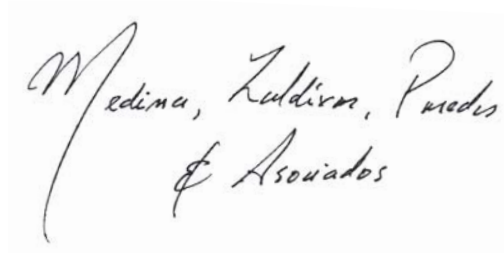 Medina, Zaldivar, Paredes
& Asociados